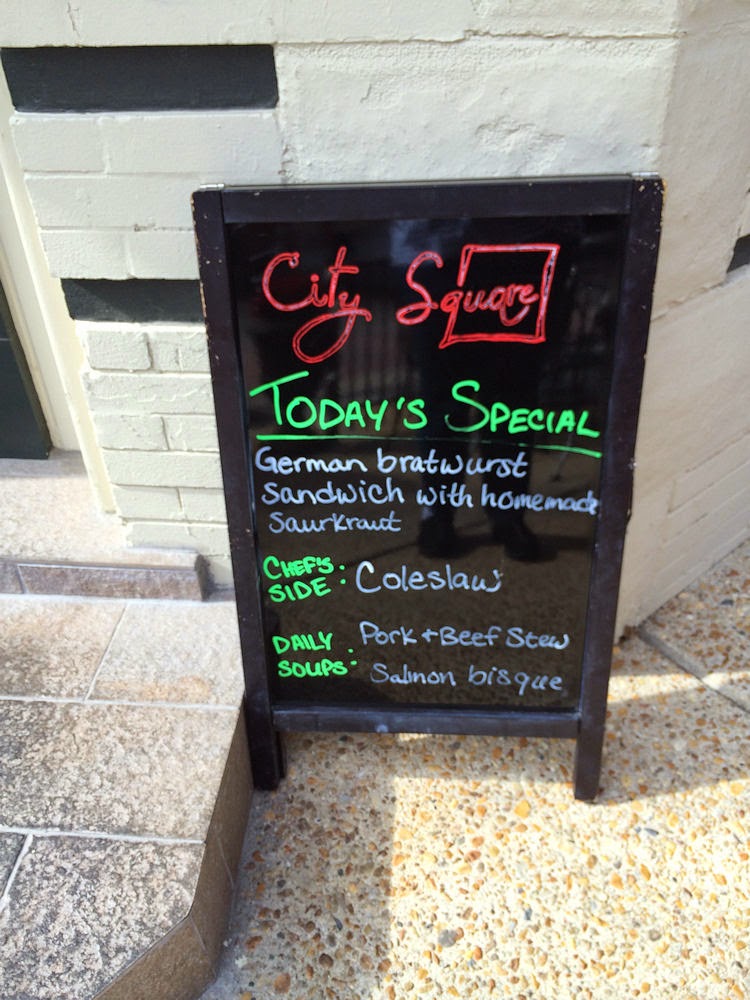 City Square
TODAY'S SPECIAL
German bratwurst
Sandwich with homemade
Saurkraut
CHEF'S SIDE: Coleslaw
DAILY SOUPS: Pork + Beef Stew
Salmon bisque